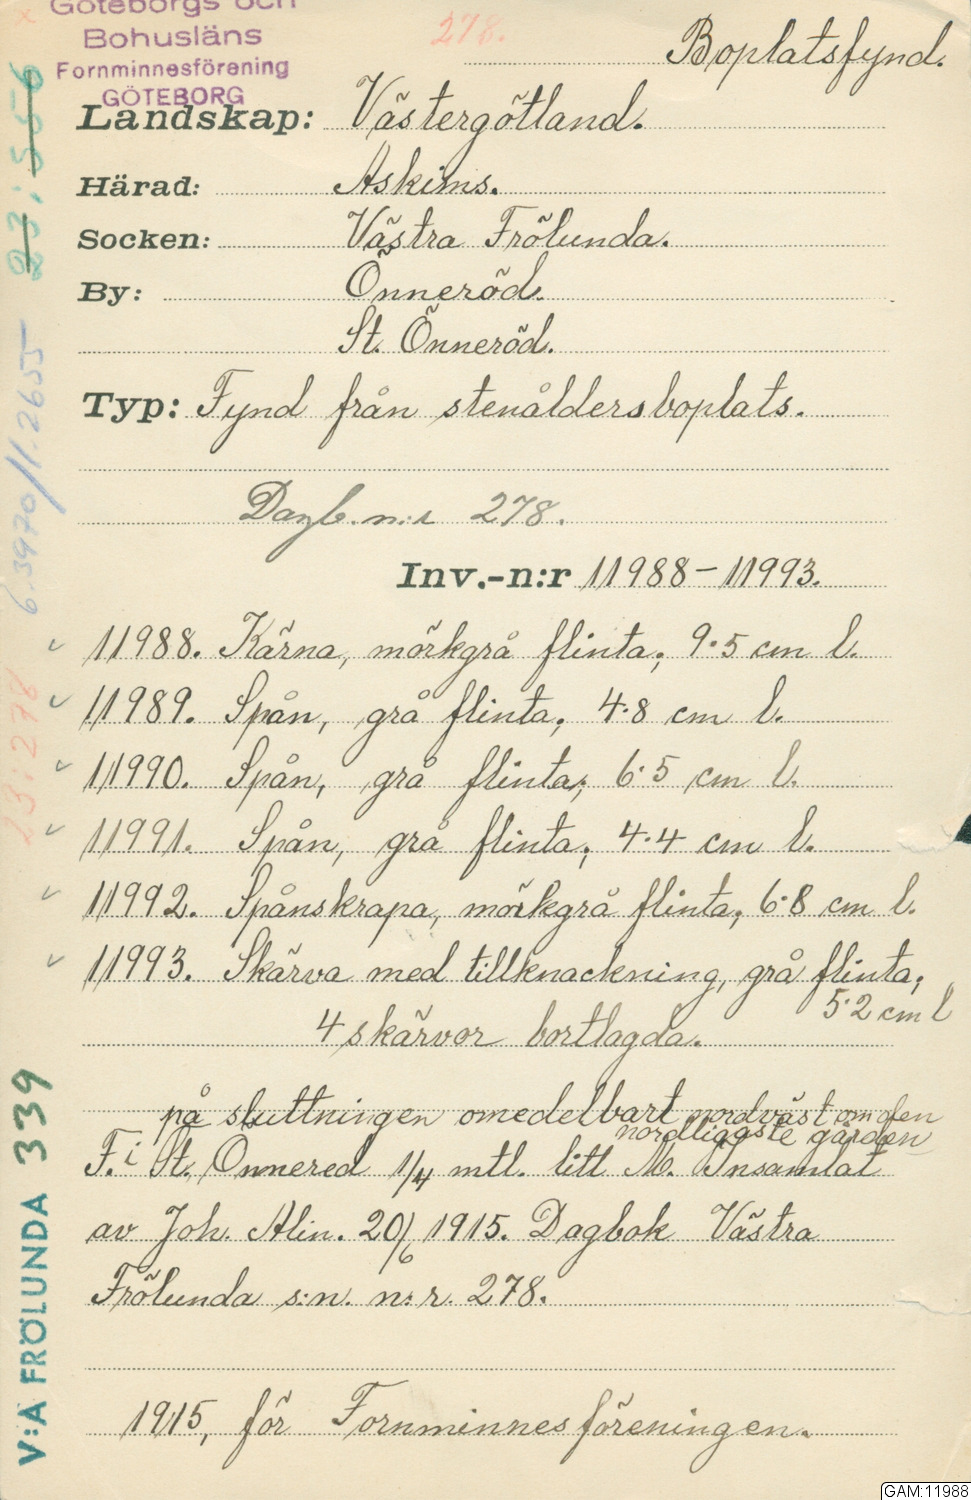 Göteborgs och
Bohusläns
Fornminnesförening
GÖTEBORG
278.
Boplatsfynd.
Landskap: Västergötland.
Härad: Askims.
Socken: Västra Frölunda.
By: Önneröd.
St. Önneröd.
Typ: Fynd från stenåldersboplats.
Dagb. n:r 278.
Inv.-n:r 11988-11993.
11988. Kärna, mörkgrå flinta; 9·5 cm l.
11989. Spån, grå flinta; 4·8 cm l.
11990. Spån, grå flinta; 6·5 cm l.
11991. Spån, grå flinta; 4·4 cm l.
11992. Spånskrapa, mörkgrå flinta; 6·8 cm l.
11993. Skärva med tillknackning, grå flinta;
5·2 cm l
4 skärvor bortlagda.
på sluttningen omedelbart nordväst om den
nordligaste gården
F. i St. Önnered 1/4 mtl. litt M. Insamlat
av Joh. Alin. 20/6 1915. Dagbok Västra
Frölunda s:n. n:r. 278.
1915, för Fornminnesföreningen.
23:556
6.3970/1.2655
23:278
V:A FRÖLUNDA 339
GAM:11988